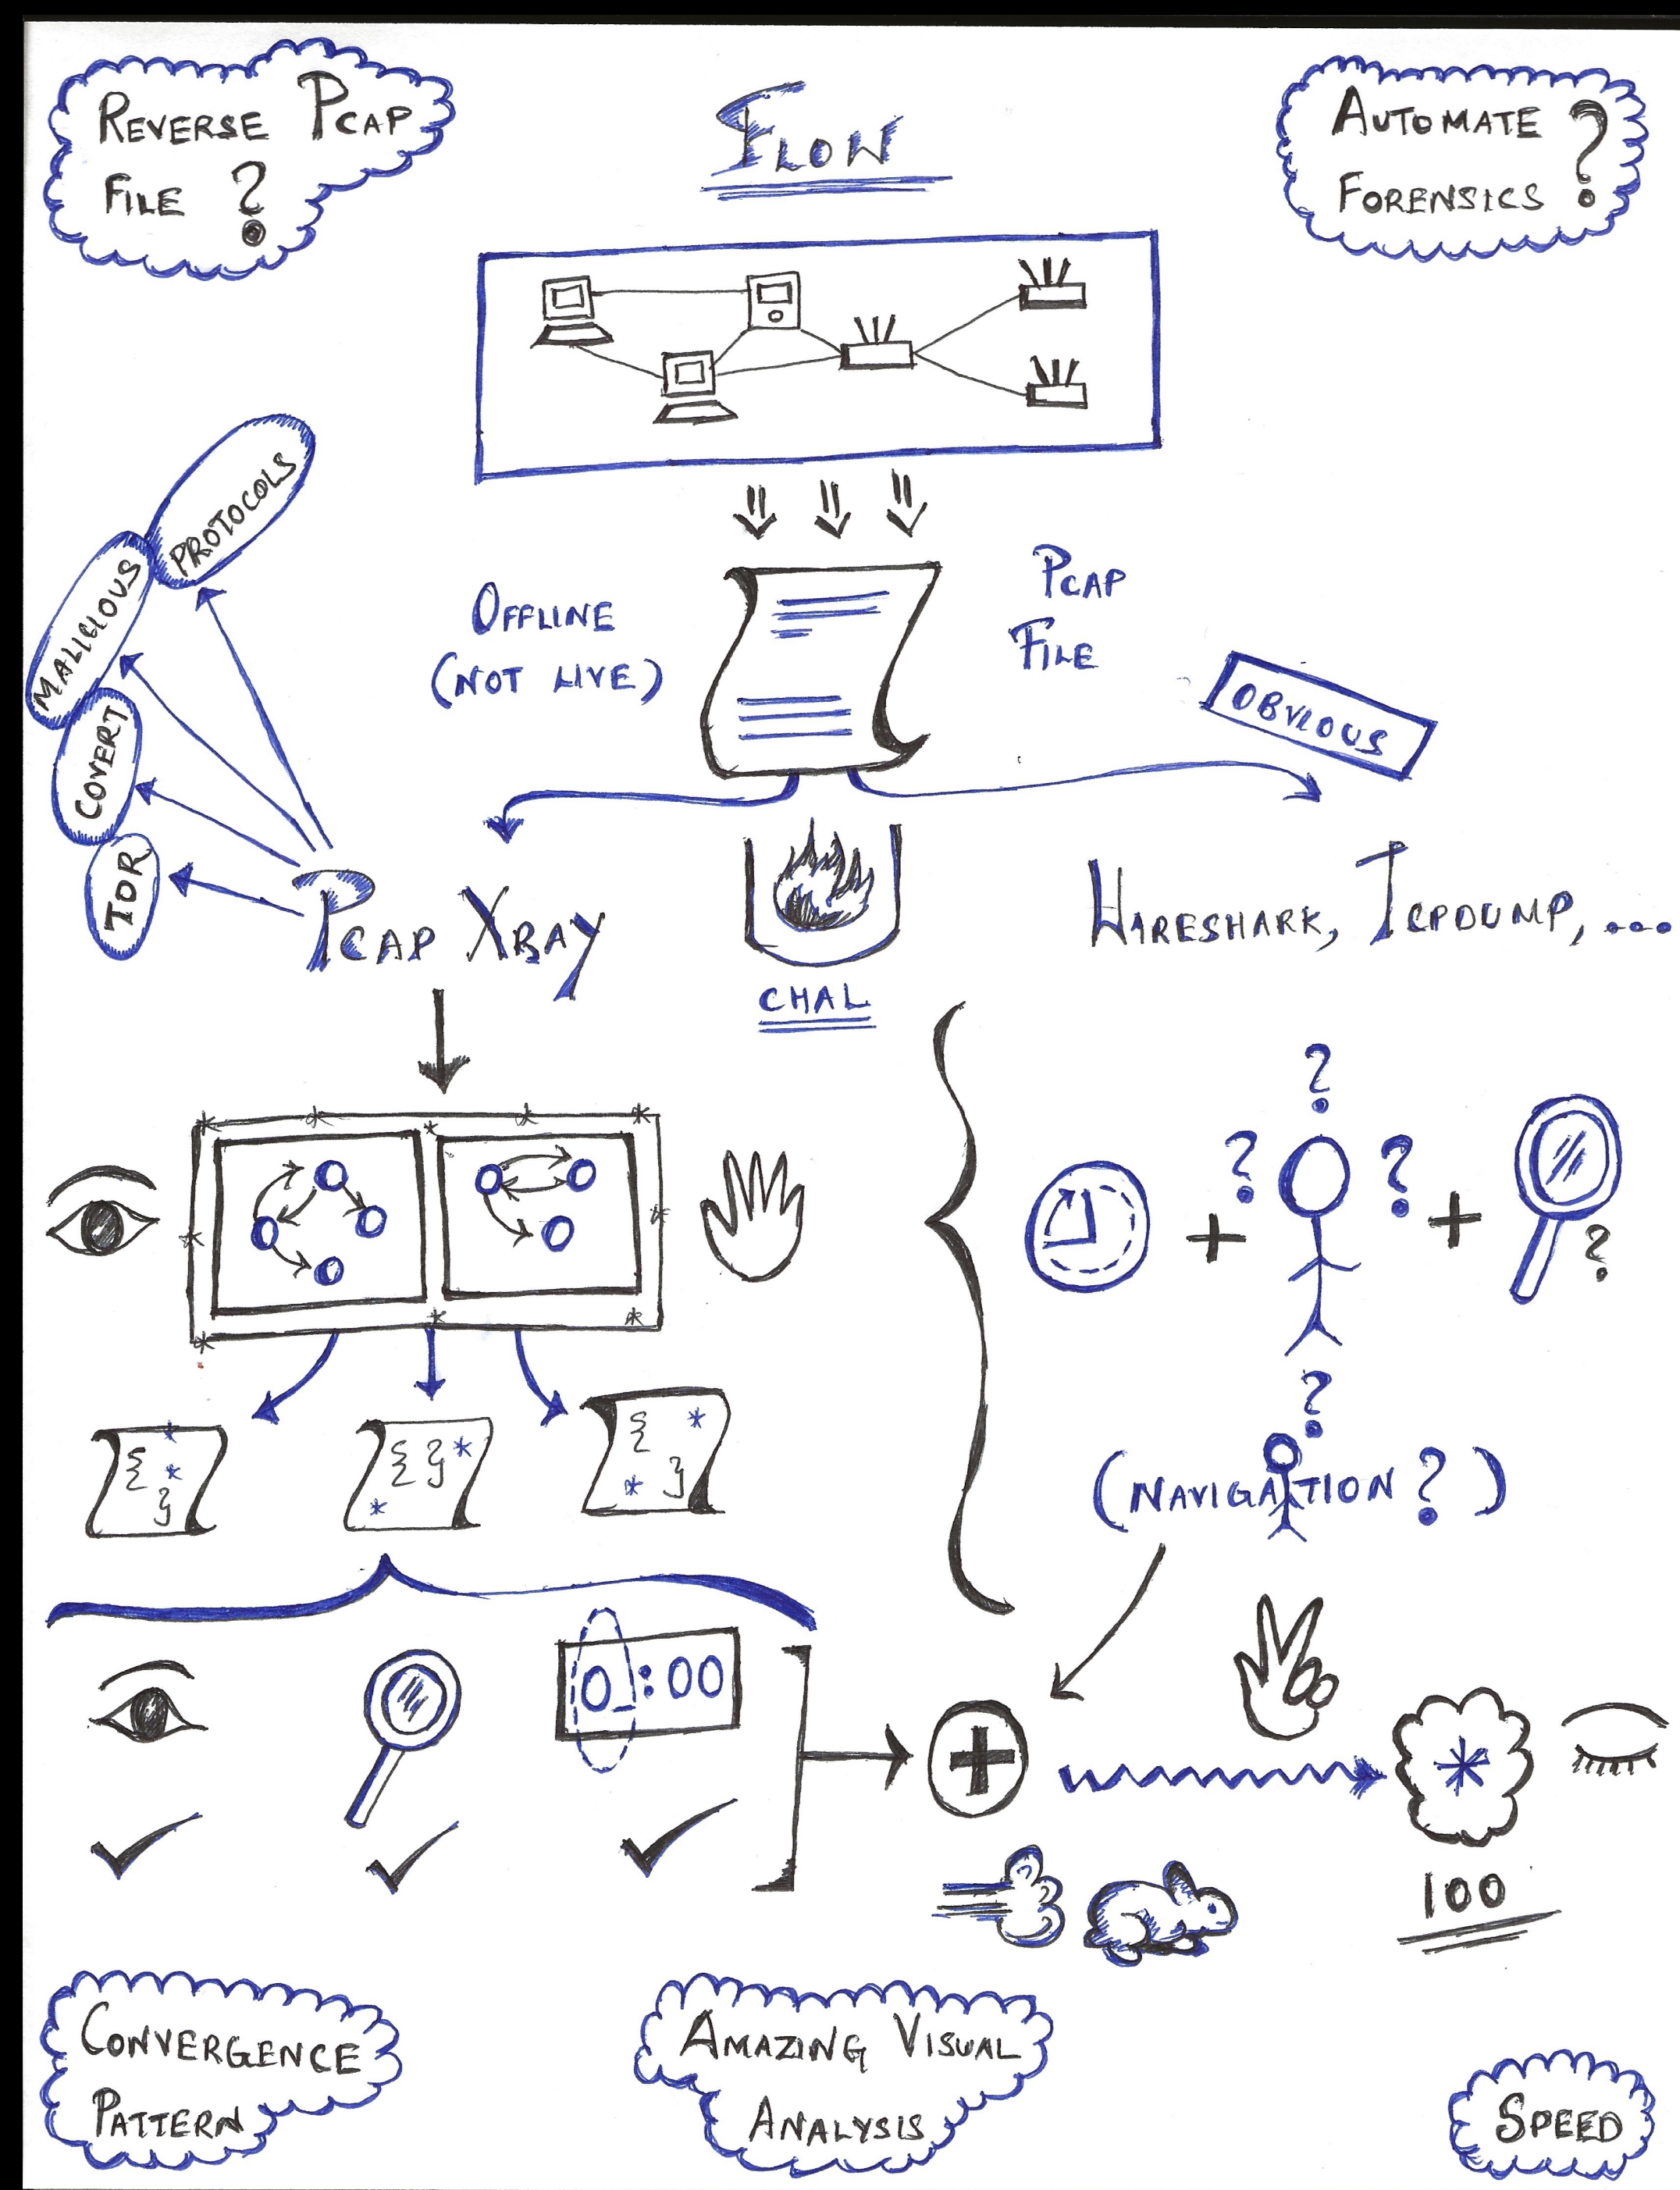 REVERSE PCAP
FILE ?
FLOW
AUTOMATE
FORENSICS ?
PROTOCOLS
MALICIOUS
COVERT
TOR
OFFLINE
(NOT LIVE)
PCAP
FILE
OBVIOUS
PCAP XRAY
CHAL
WIRESHARK, TCPDUMP, ...
?
? ?
+ +
?
{ * * }
{ } * *
{ * * }
?
(NAVIGATION ?)
0_:00
+
*
100
CONVERGENCE
PATTERN
AMAZING VISUAL
ANALYSIS
SPEED